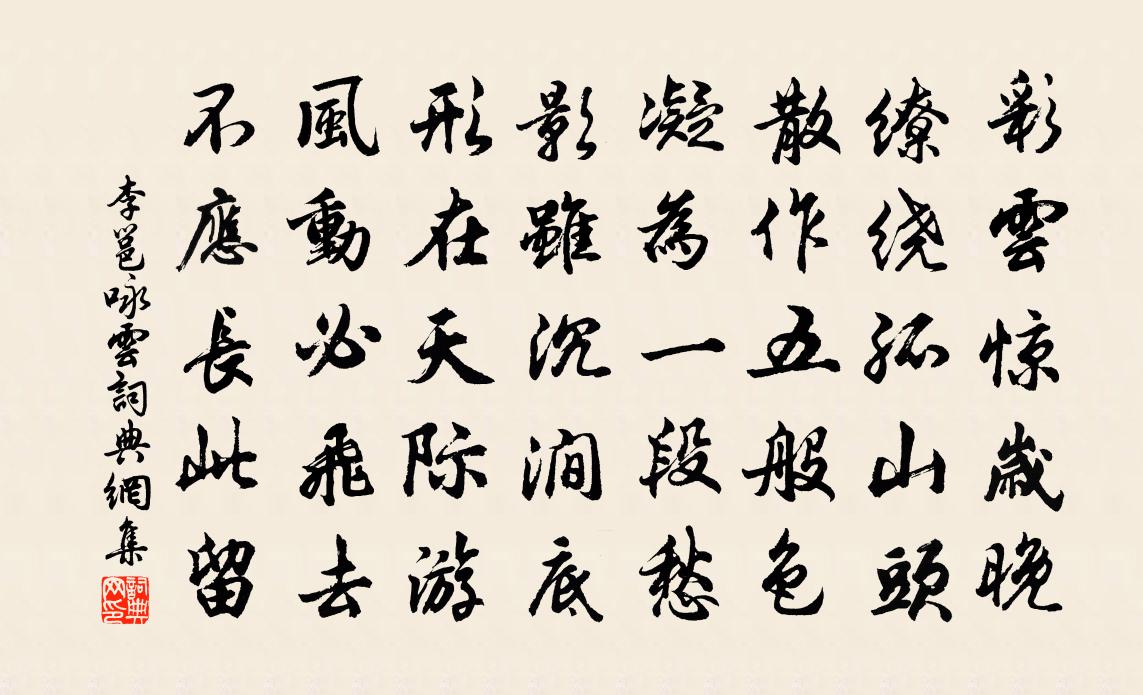 彩雲惊歲晚
繚绕孤山頭
散作五般色
凝為一段愁
影雖沉澗底
形在天际游
風動必飛去
不應長此留
李邕咏雲詞典網集
詞典网印